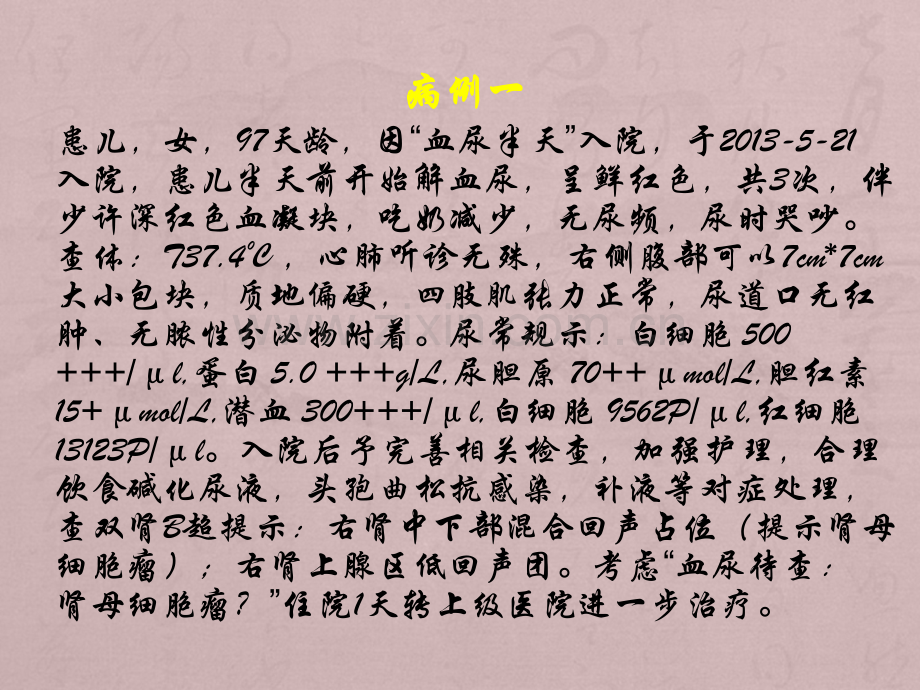 病例一
患儿，女，97天龄，因“血尿半天”入院，于2013-5-21
入院，患儿半天前开始解血尿，呈鲜红色，共3次，伴
少许深红色血凝块，吃奶减少，无尿频，尿时哭吵。
查体：T37.4℃，心肺听诊无殊，右侧腹部可以7cm*7cm
大小包块，质地偏硬，四肢肌张力正常，尿道口无红
肿、无脓性分泌物附着。尿常规示：白细胞 500
+++/μl,蛋白 5.0 +++g/L,尿胆原 70++ μmol/L,胆红素
15+ μmol/L,潜血 300+++/μl,白细胞 9562P/μl,红细胞
13123P/μl。入院后予完善相关检查，加强护理，合理
饮食碱化尿液，头孢曲松抗感染，补液等对症处理，
查双肾B超提示：右肾中下部混合回声占位（提示肾母
细胞瘤）；右肾上腺区低回声团。考虑“血尿待查：
肾母细胞瘤？”住院1天转上级医院进一步治疗。
www.zixin.com.cn